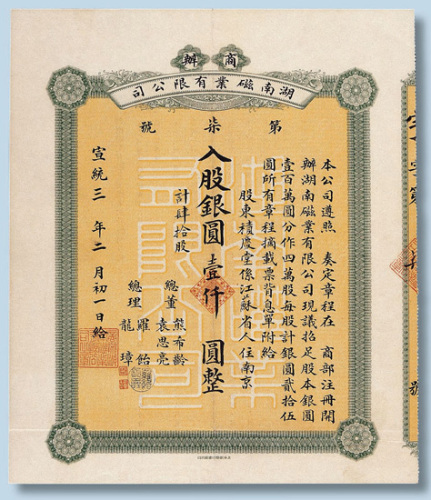 商辦
湖南磁業有限公司
第柒號
本公司遵照 奏定章程在 商部註冊開
辦湖南磁業有限公司現議招足股本銀圓
壹百萬圓分作四萬股每股計銀圓貳拾伍
圓所有章程摘載票背息單附給
股東積慶堂係江蘇省人住南京
入股銀圓壹仟圓整
計肆拾股
總董 熊希齡
袁思亮
總理 羅飴
龍璋
宣統三年二月初一日給
號